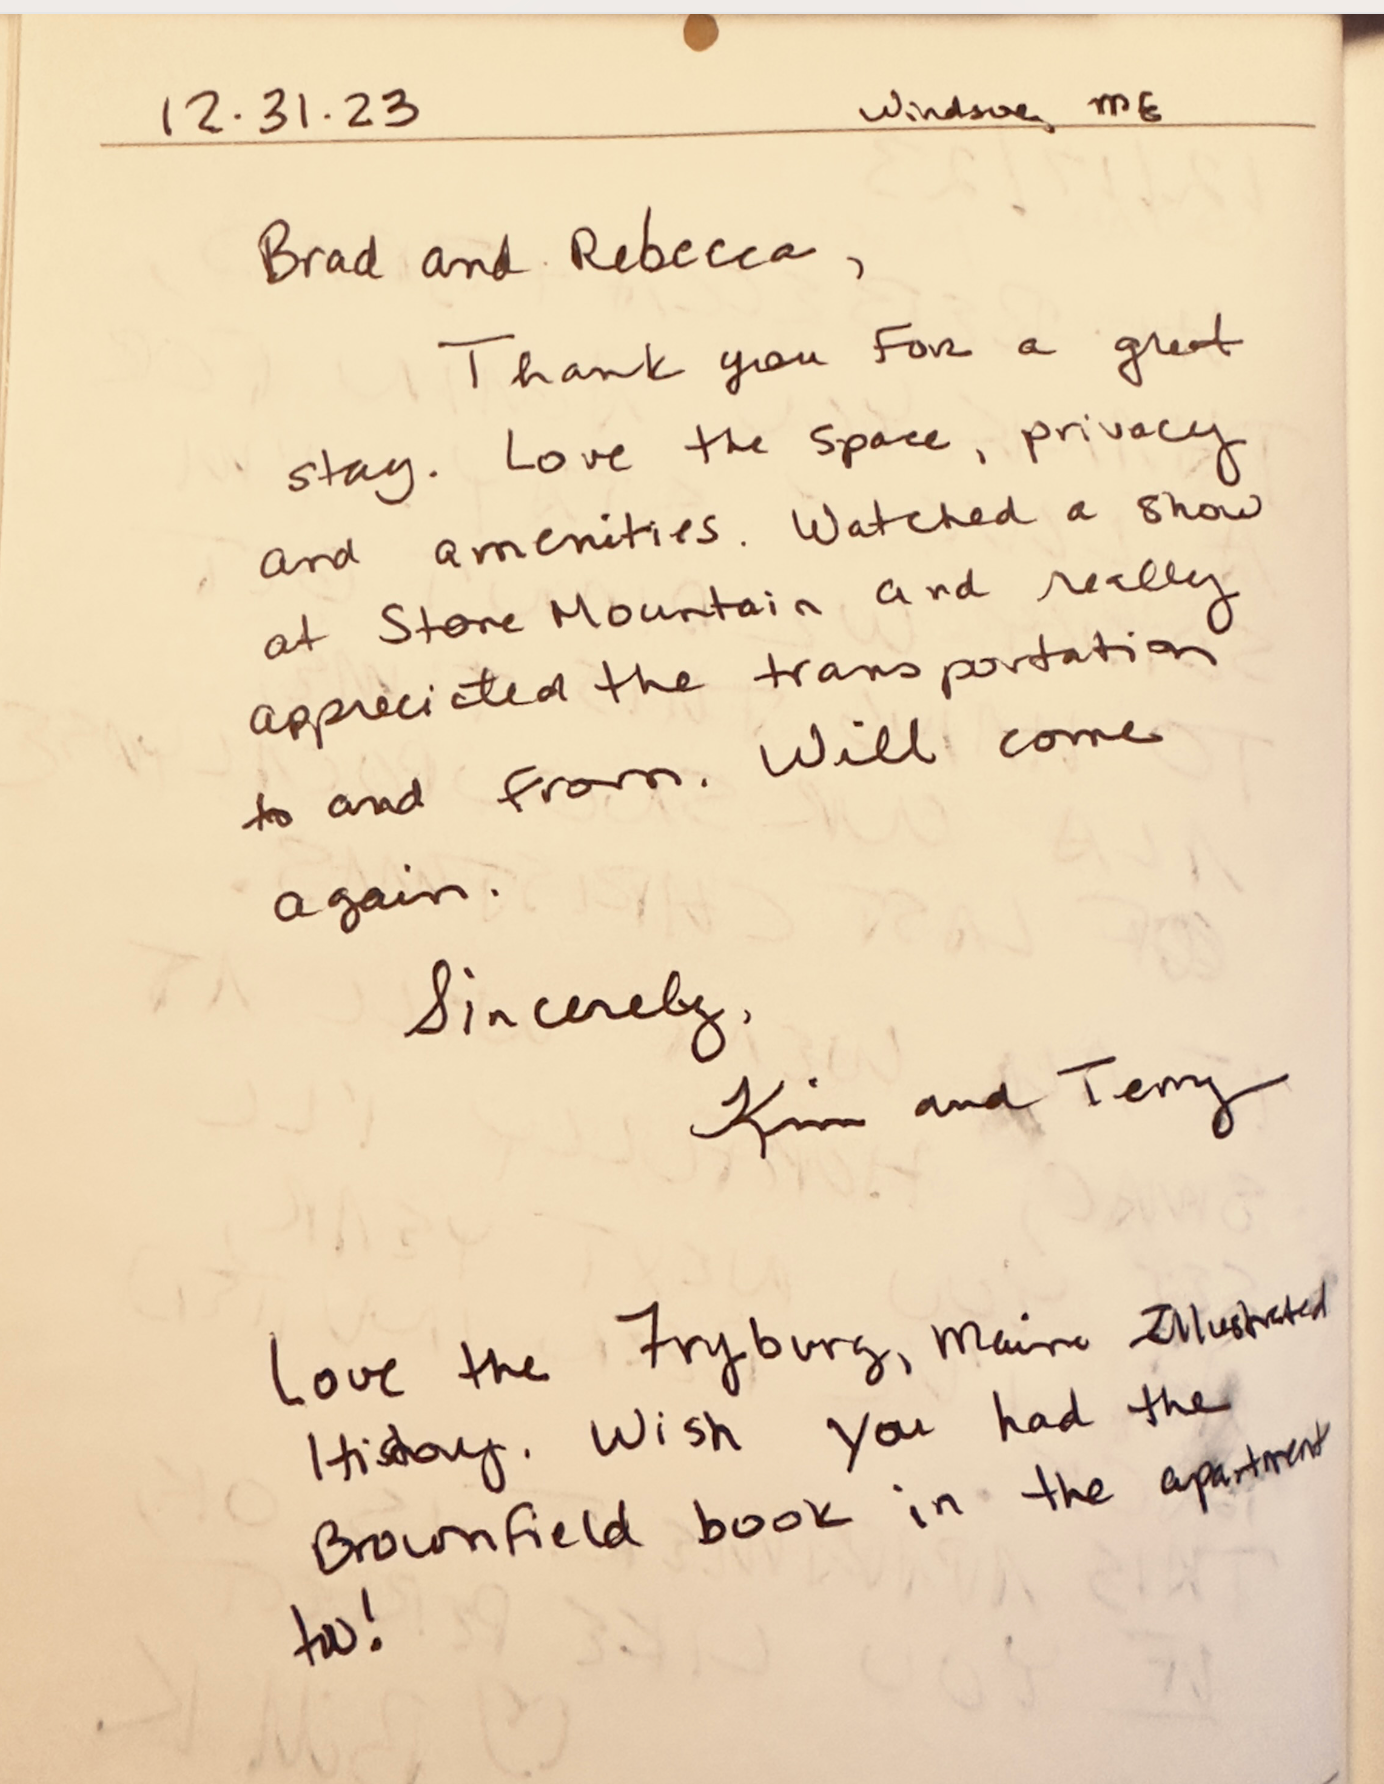 12.31.23 Windsor, ME
Brad and Rebecca,
Thank you For a great
stay. Love the space, privacy
and amenities. Watched a show
at Stone Mountain and really
appreciated the transportation
to and From. Will come
again.
Sincerely,
Kim and Terry
Love the Fryburg, Maine Illustrated
History. Wish you had the
Brownfield book in the apartment
too!